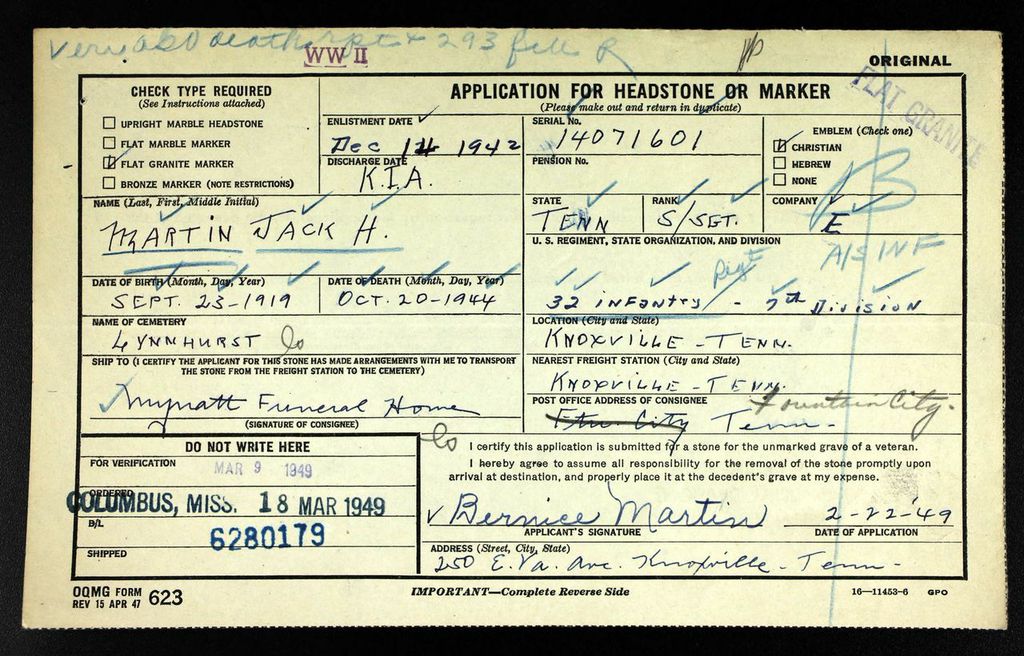 Very ABD death rpt + 293 file R
WW II
ORIGINAL
FLAT GRANITE
CHECK TYPE REQUIRED
(See Instructions attached)
UPRIGHT MARBLE HEADSTONE
FLAT MARBLE MARKER
FLAT GRANITE MARKER
BRONZE MARKER (NOTE RESTRICTIONS)
APPLICATION FOR HEADSTONE OR MARKER
(Please make out and return in duplicate)
ENLISTMENT DATE
Dec 14 1942
DISCHARGE DATE
K.I.A.
SERIAL No.
14071601
PENSION No.
EMBLEM (Check one)
CHRISTIAN
HEBREW
NONE
NAME (Last, First, Middle Initial)
MARTIN JACK H.
STATE
TENN
RANK
S/SGT.
COMPANY
E
B
A/S INF
U. S. REGIMENT, STATE ORGANIZATION, AND DIVISION
Regt
32 infantry - 7th Division
DATE OF BIRTH (Month, Day, Year)
SEPT. 23-1919
DATE OF DEATH (Month, Day, Year)
OCT. 20-1944
NAME OF CEMETERY
LYNNHURST
LOCATION (City and State)
KNOXVILLE - TENN.
SHIP TO (I CERTIFY THE APPLICANT FOR THIS STONE HAS MADE ARRANGEMENTS WITH ME TO TRANSPORT
THE STONE FROM THE FREIGHT STATION TO THE CEMETERY)
Mynatt Funeral Home
(SIGNATURE OF CONSIGNEE)
NEAREST FREIGHT STATION (City and State)
KNOXVILLE - TENN.
POST OFFICE ADDRESS OF CONSIGNEE
Fountain City.
Ftn. City Tenn-
DO NOT WRITE HERE
FOR VERIFICATION
MAR 9 1949
ORDERED
COLUMBUS, MISS. 18 MAR 1949
B/L
6280179
SHIPPED
I certify this application is submitted for a stone for the unmarked grave of a veteran.
I hereby agree to assume all responsibility for the removal of the stone promptly upon
arrival at destination, and properly place it at the decedent's grave at my expense.
Bernice Martin 2-22-49
APPLICANT'S SIGNATURE DATE OF APPLICATION
ADDRESS (Street, City, State)
250 E. Va. Ave. Knoxville - Tenn-
OQMG FORM
REV 15 APR 47 623
IMPORTANT—Complete Reverse Side
16—11453-6 GPO